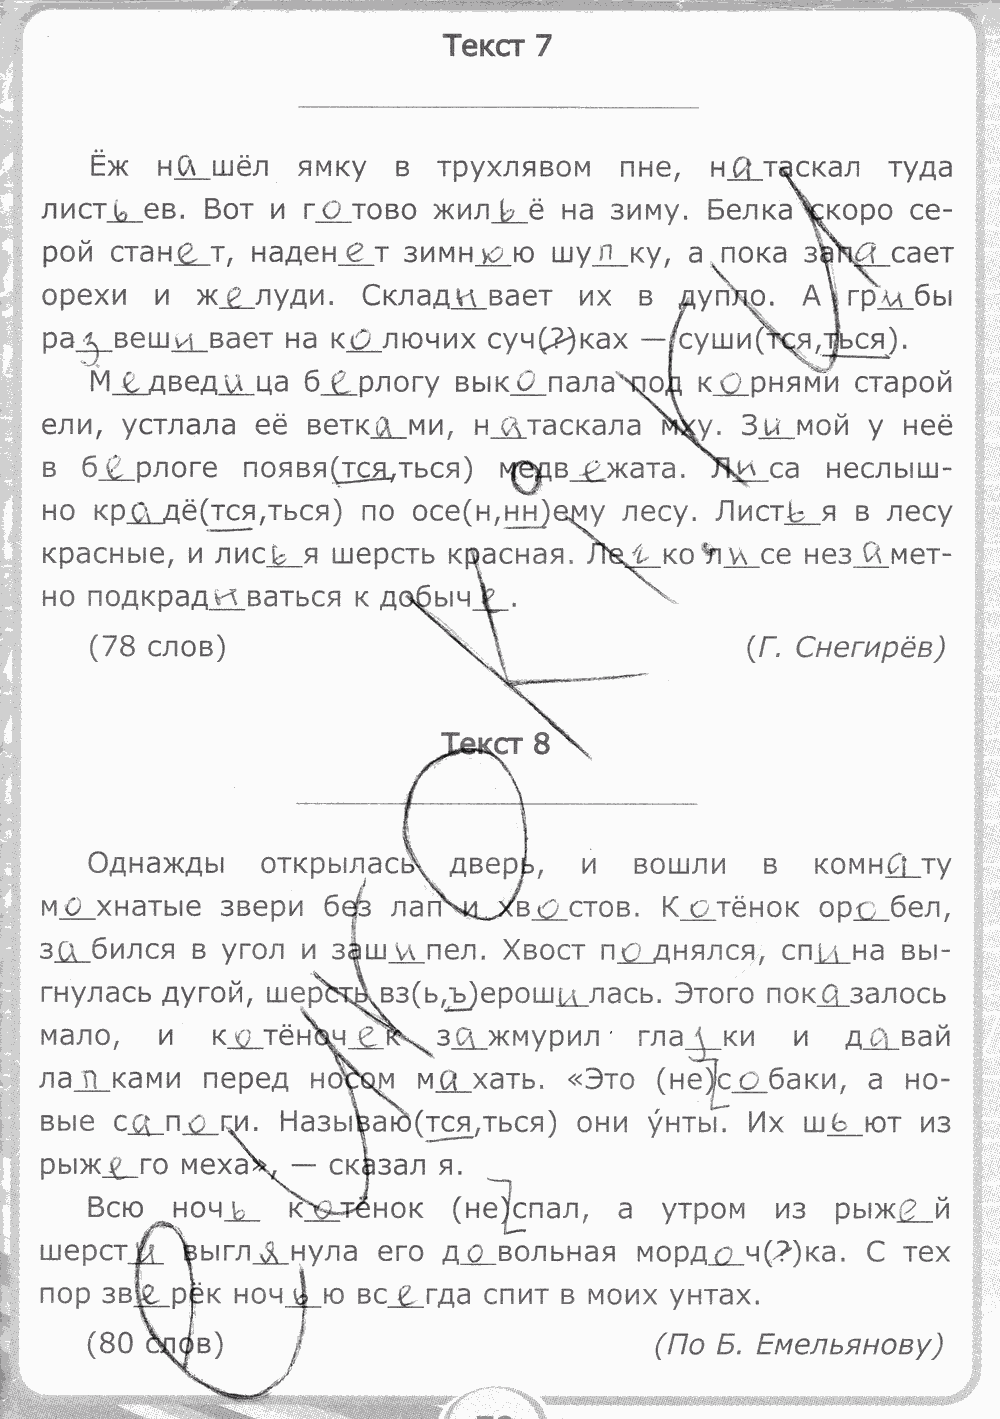 Текст 7
Ёж нашёл ямку в трухлявом пне, натаскал туда
листьев. Вот и готово жильё на зиму. Белка скоро се-
рой станет, наденет зимнюю шупку, а пока запасает
орехи и желуди. Складивает их в дупло. А грибы
развешивает на колючих суч(?)ках — суши(тся,ться).
Медведица берлогу выкопала под корнями старой
ели, устлала её ветками, натаскала мху. Зимой у неё
в берлоге появя(тся,ться) медвежата. Лиса неслыш-
но крадё(тся,ться) по осе(н,нн)ему лесу. Листья в лесу
красные, и лисья шерсть красная. Легко лисе незамет-
но подкрадиваться к добыче.
(78 слов) (Г. Снегирёв)
Текст 8
Однажды открылась дверь, и вошли в комнату
мохнатые звери без лап и хвостов. Котёнок оробел,
забился в угол и зашипел. Хвост поднялся, спина вы-
гнулась дугой, шерсть вз(ь,ъ)ерошилась. Этого показалось
мало, и котёночек зажмурил глазки и давай
лапками перед носом махать. «Это (не)собаки, а но-
вые сапоги. Называю(тся,ться) они у́нты. Их шьют из
рыжего меха», — сказал я.
Всю ночь котёнок (не)спал, а утром из рыжей
шерсти выглянула его довольная мордоч(?)ка. С тех
пор зверёк ночью всегда спит в моих унтах.
(80 слов) (По Б. Емельянову)